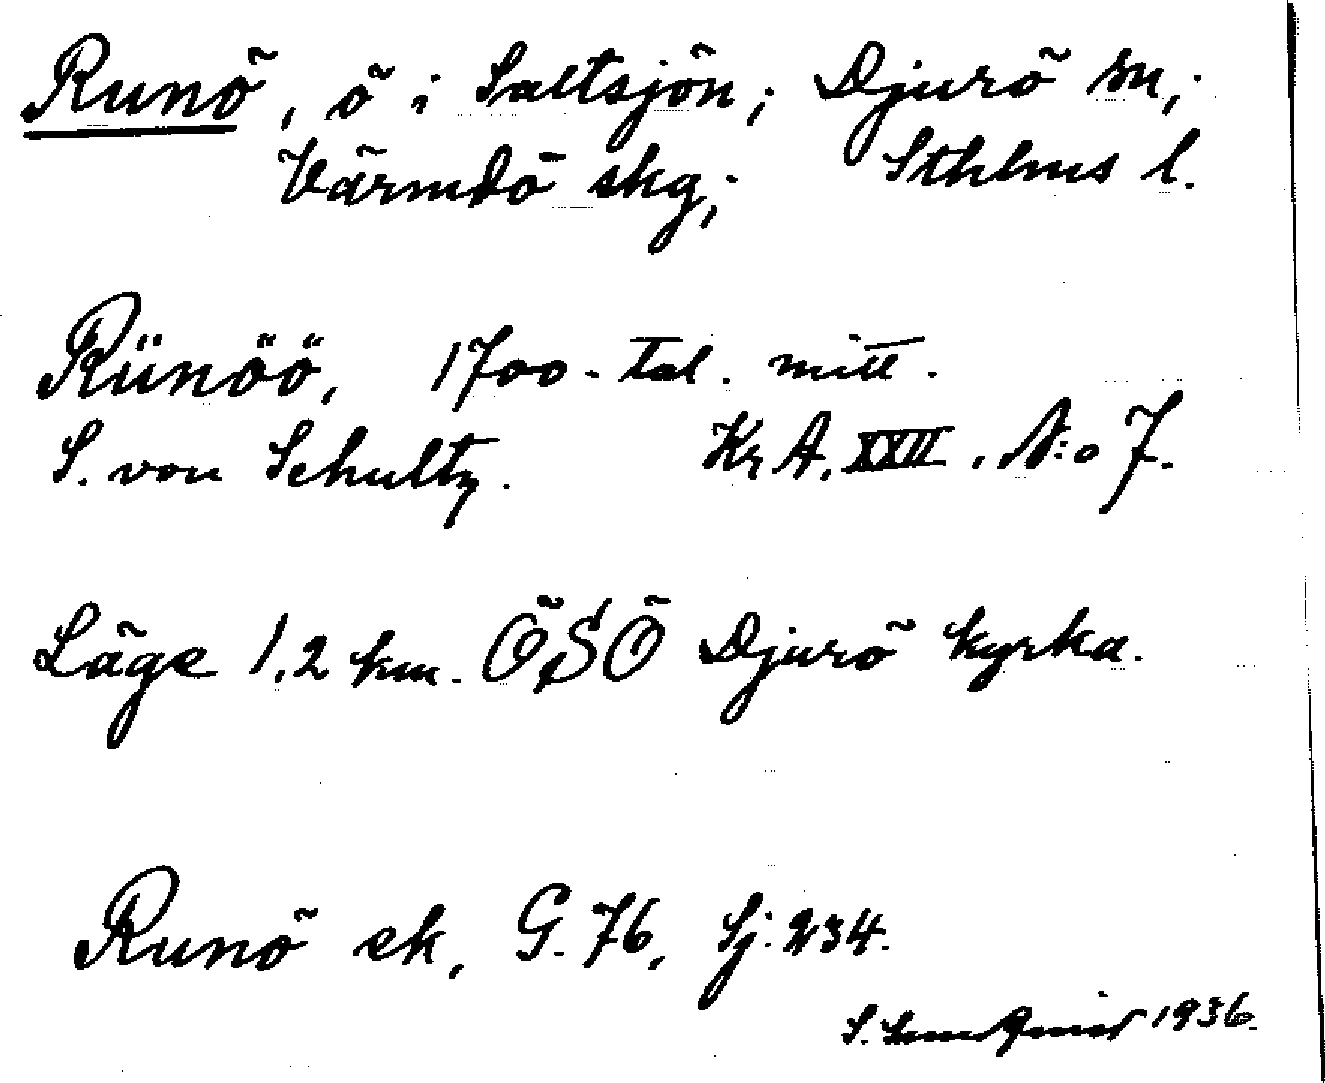 Runö, ö i Saltsjön; Djurö sn;
Värmdö skg; Sthlms l.
Rünöö, 1700-tal. mitt.
S. von Schultz. Kr A. XXII. N:o 7.
Läge 1,2 km. ÖSÖ Djurö kyrka.
Runö ek, G. 76, Sj: 234.
S. 1936